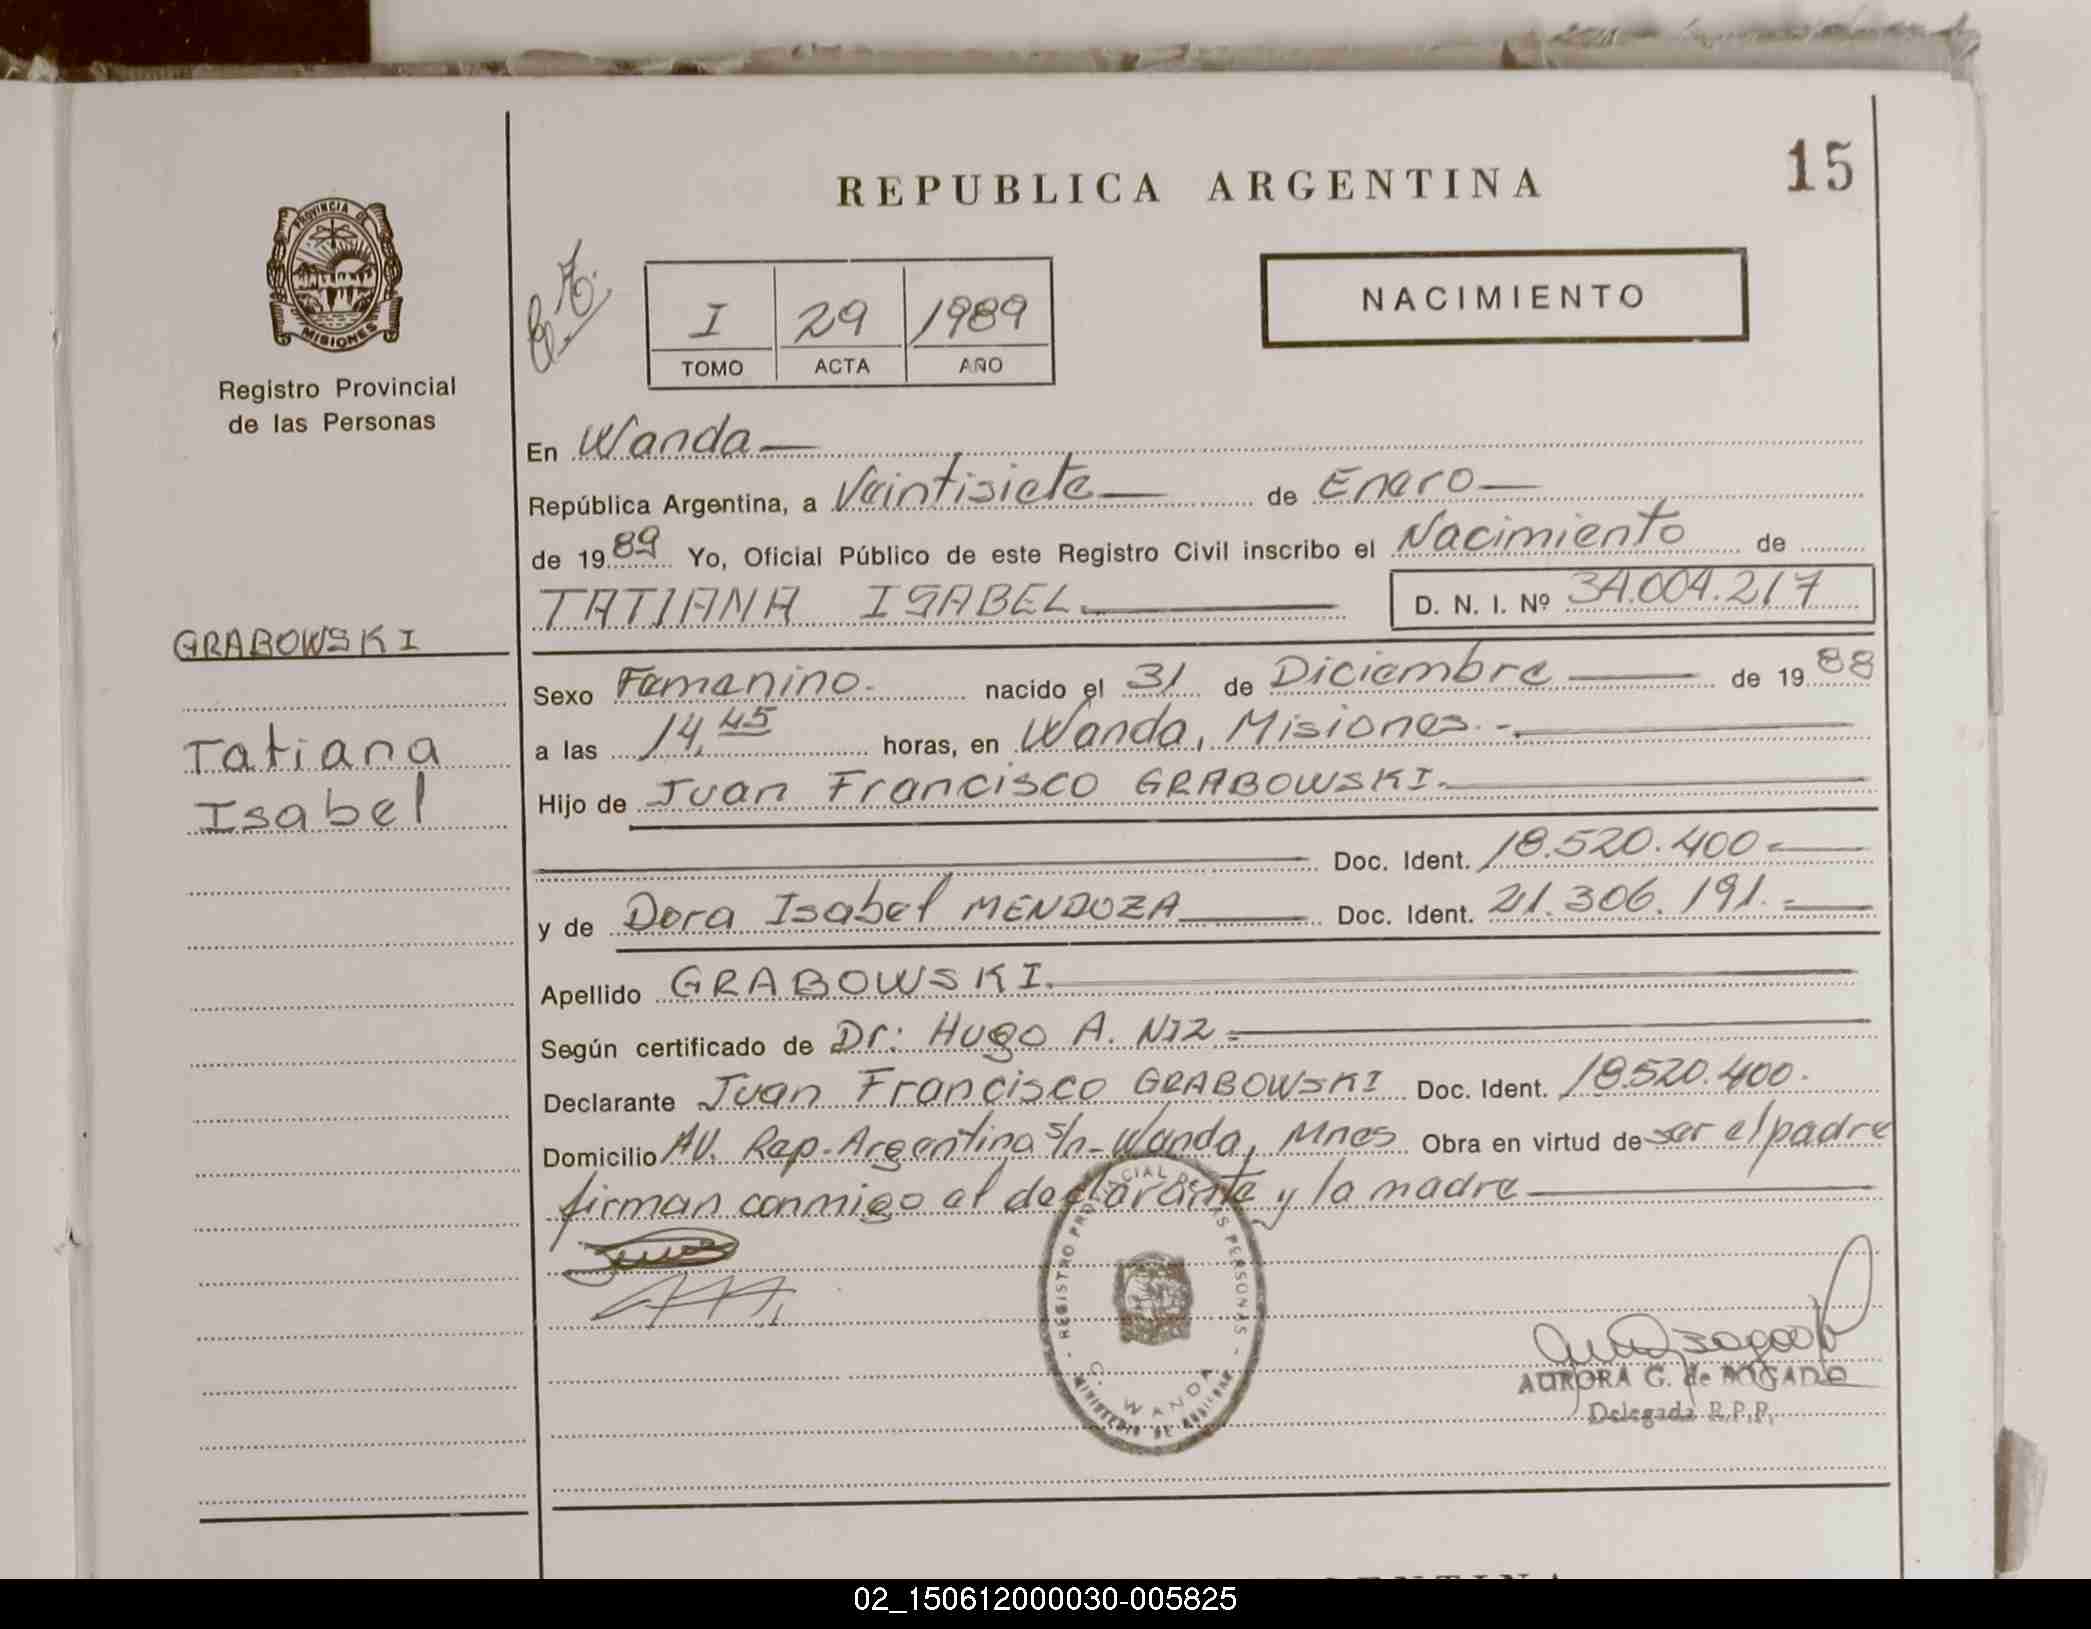 REPUBLICA ARGENTINA
15
PROVINCIA DE MISIONES
Registro Provincial
de las Personas
NACIMIENTO
I 29 1989
TOMO ACTA AÑO
En Wanda
República Argentina, a Veintisiete de Enero
de 1989 Yo, Oficial Público de este Registro Civil inscribo el Nacimiento de
TATIANA ISABEL D. N. I. Nº 34.004.217
GRABOWSKI
Tatiana
Isabel
Sexo Femenino. nacido el 31 de Diciembre de 1988
a las 14,45 horas, en Wanda, Misiones.-
Hijo de Juan Francisco GRABOWSKI.
Doc. Ident. 18.520.400-
y de Dora Isabel MENDOZA Doc. Ident. 21.306.191.-
Apellido GRABOWSKI.
Según certificado de Dr: Hugo A. NIZ
Declarante Juan Francisco GRABOWSKI Doc. Ident. 18.520.400.
Domicilio AV. Rep. Argentina s/n- Wanda, Mnes Obra en virtud de ser el padre
firman conmigo el declarante y la madre
REGISTRO PROVINCIAL DE LAS PERSONAS
WANDA
AURORA G. de BOGADO
Delegada R.P.P.
02_150612000030-005825